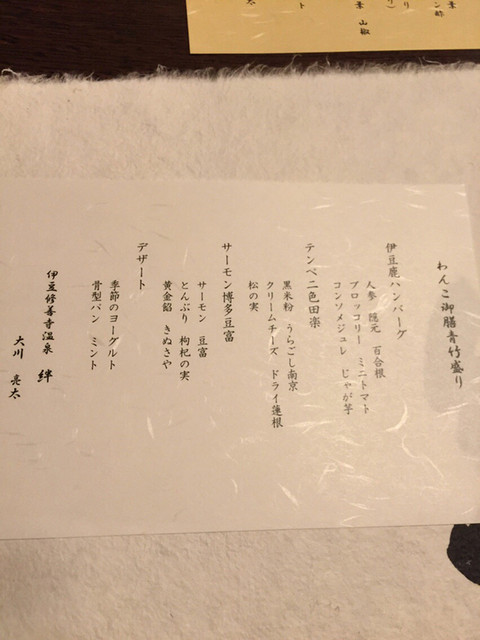 わんこ御膳青竹盛り
伊豆鹿ハンバーグ
人参 隠元 百合根
ブロッコリー ミニトマト
コンソメジュレ じゃが芋
テンペ二色田楽
黒米粉 うらごし南京
クリームチーズ ドライ蓮根
松の実
サーモン博多豆富
サーモン 豆富
とんぶり 枸杞の実
黄金餡 きぬさや
デザート
季節のヨーグルト
骨型パン ミント
伊豆修善寺温泉 絆
大川 亮太